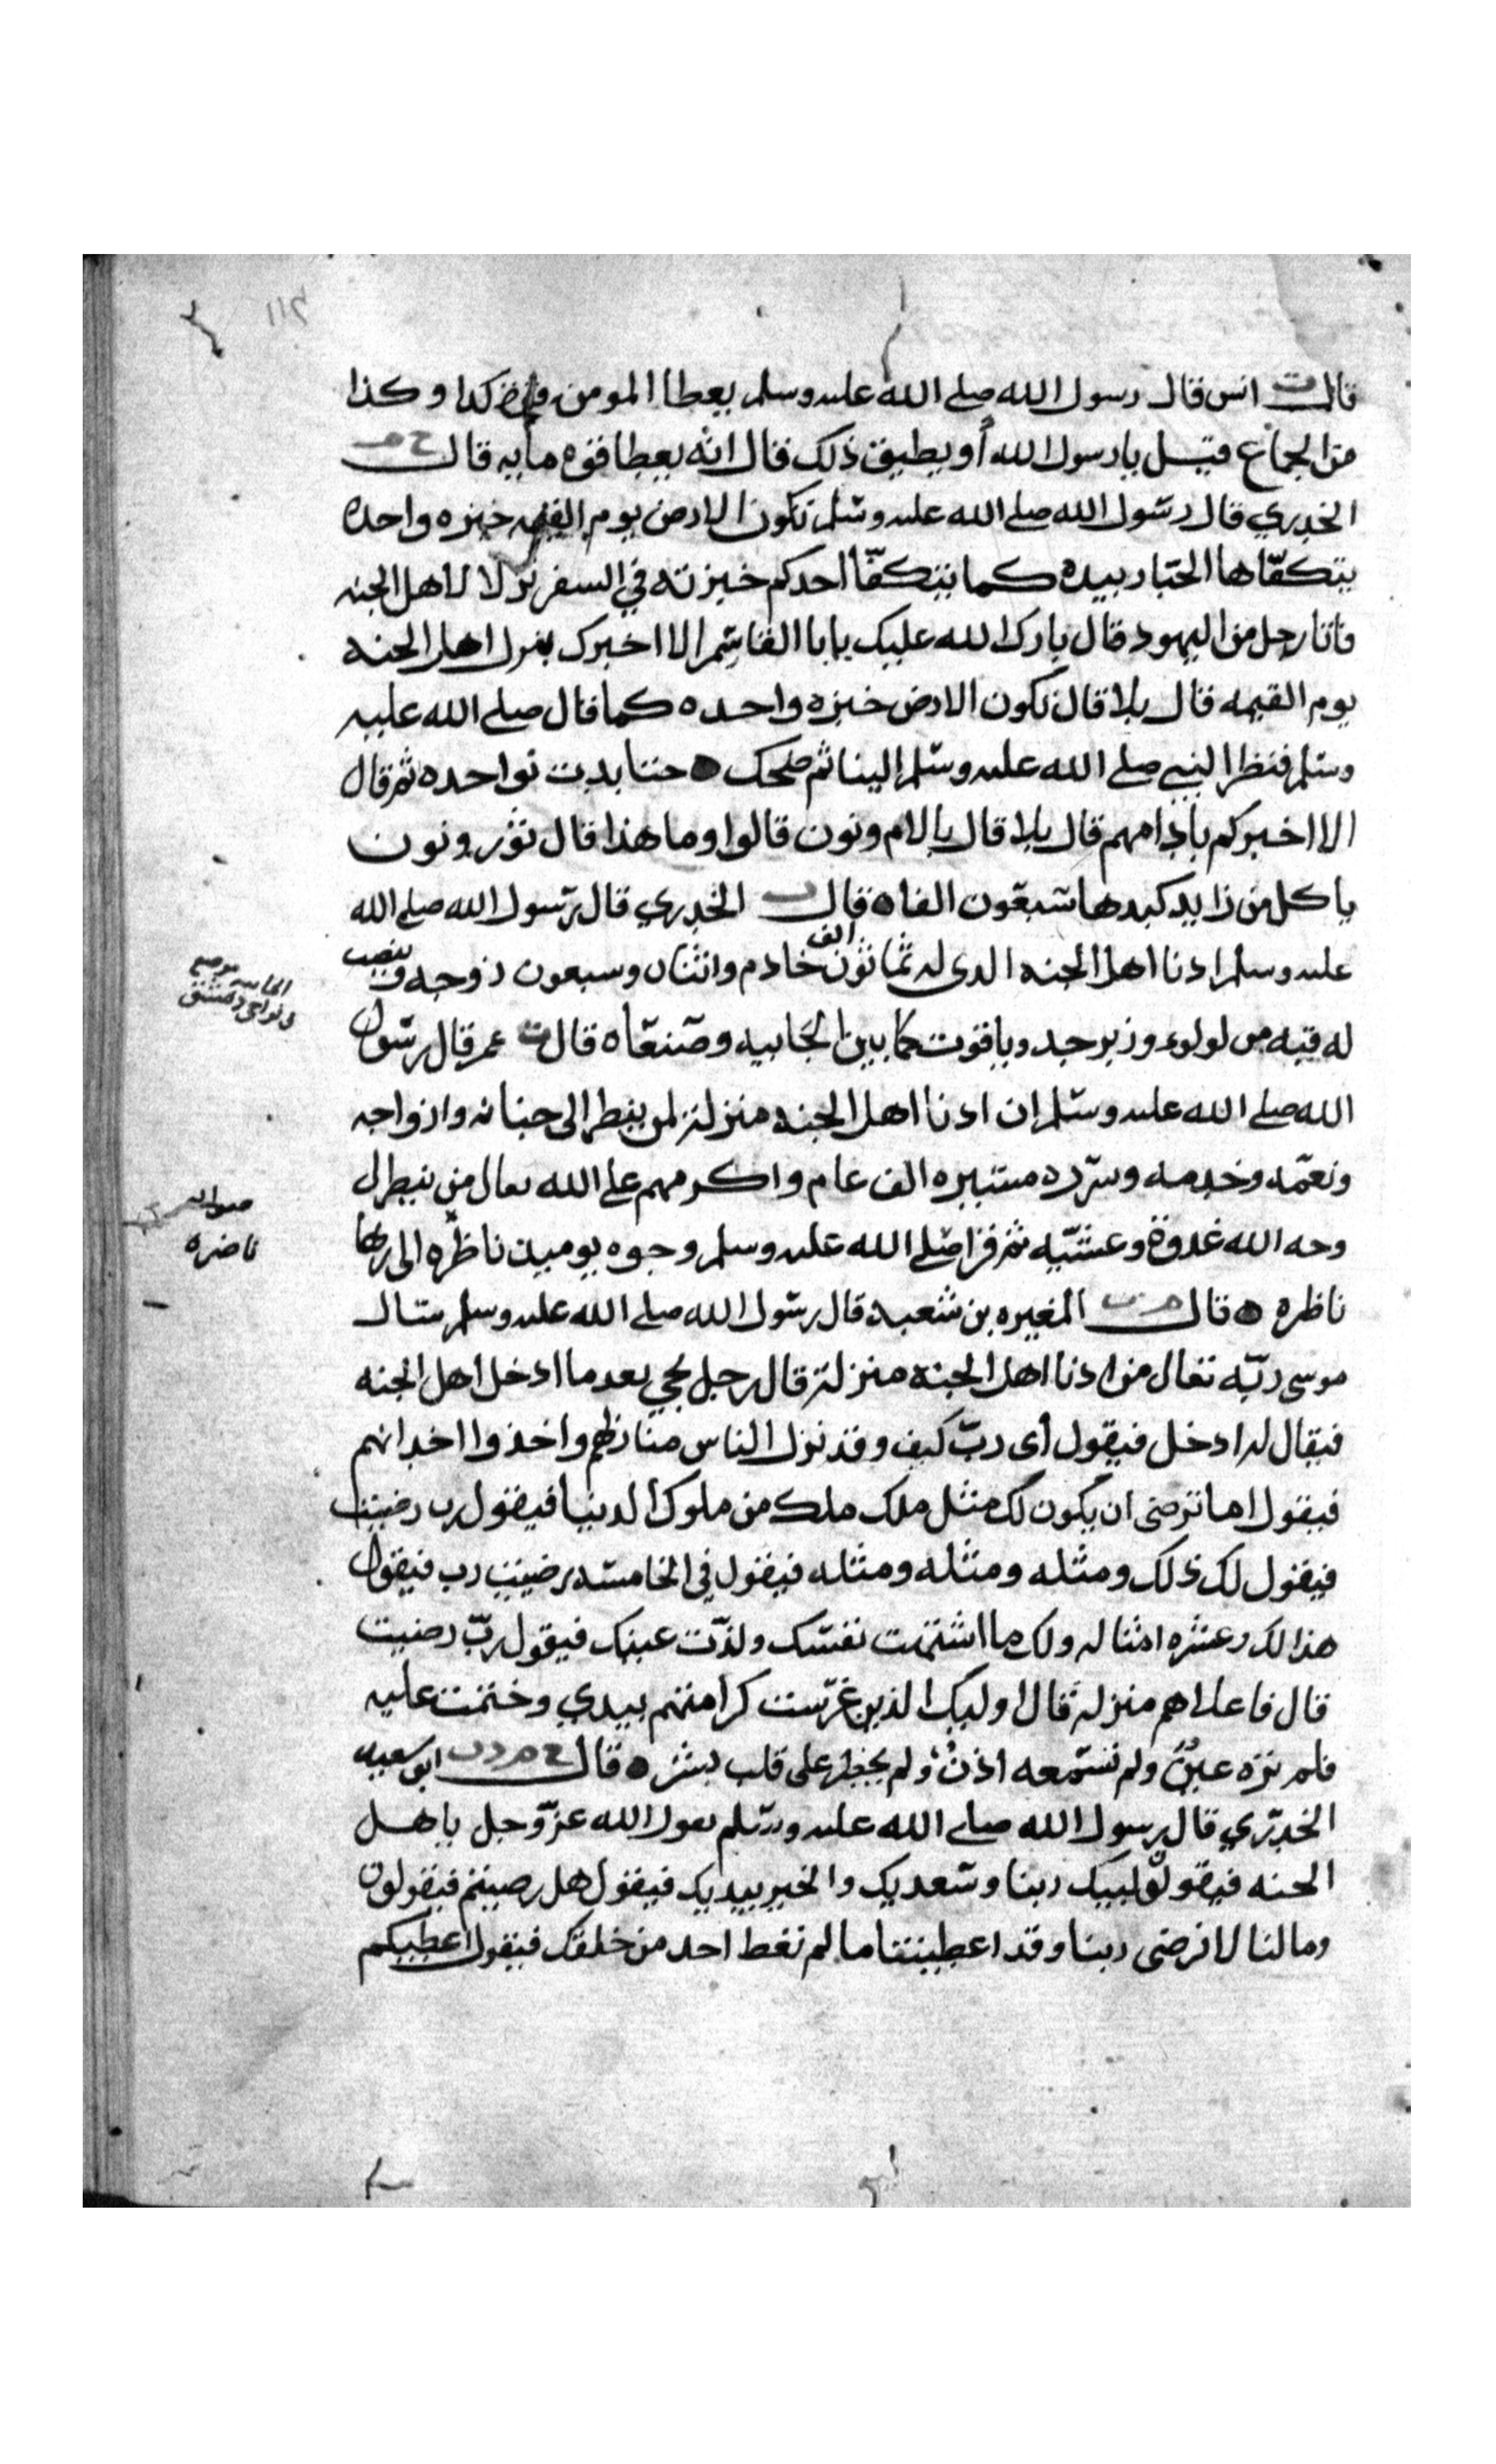 ١١٢
قال ت انس قال رسول الله صلى الله عليه وسلم يعطا المومن قوة كذا وكذا
من الجماع فقيل يا رسول الله أو يطيق ذلك قال انه يعطا قوة مايه قال خ م
الخدري قال رسول الله صلى الله عليه وسلم تكون الارض يوم القيمه خبزه واحده
يتكفّاها الجبّار بيده كما يتكفّأ احدكم خبزته في السفر نزلا لاهل الجنه
فاتا رجل من اليهود قال بارك الله عليك يابا القاسم الا اخبرك بنزل اهل الجنه
يوم القيمه قال بلا قال تكون الارض خبزه واحده كما قال صلى الله عليه
وسلم فنظر النبي صلى الله عليه وسلم الينا ثم ضحك حتا بدت نواجده ثم قال
الا اخبركم بأدامهم قال بلا قال بالام ونون قالوا وما هذا قال ثور ونون
ياكل من زايد كبدها سبعون الفا ه قال ت الخدري قال رسول الله صلى الله
عليه وسلم ادنا اهل الجنه الدى له ثمانون الف خادم واثنتان وسبعون زوجه وينصب
له قبه من لولوء وزبرجد وياقوت كما بين الجابيه وصنعا ه قال ت عمر قال رسول
الله صلى الله عليه وسلم ان ادنا اهل الجنه منزلة لمن ينظر الى جنانه وازواجه
ونعمه وخدمه وسرره مسيره الف عام واكرمهم على الله تعالى من ينظر الى
وجه الله غدوة وعشيّه ثم قرا صلى الله عليه وسلم وجوه يوميذ ناظره الى ربها
ناظره ه قال م ت المغيره بن شعبه قال رسول الله صلى الله عليه وسلم سال
موسى ربّه تعالى من ادنا اهل الجنه منزلة قال رجل يجي بعد ما ادخل اهل الجنه
فيقال له ادخل فيقول أى ربّ كيف وقد نزل الناس منازلهم واخذوا اخداتهم
فيقول اما ترضى ان يكون لك مثل ملك ملك من ملوك الدنيا فيقول رب رضيت
فيقول لك ذلك ومثله ومثله ومثله فيقول في الخامسه رضيت رب فيقول
هذا لك وعشره امثاله ولك ما اشتهت نفسك ولذّت عينك فيقول ربّ رضيت
قال فاعلاهم منزله قال اوليك الذين غرست كرامتهم بيدي وختمت عليه
فلم تره عينٌ ولم تسمعه اذنٌ ولم يخطر على قلب بشر ه قال خ م د ت ابو سعيد
الخدري قال رسول الله صلى الله عليه وسلم يقول الله عز وجل ياهل
الجنه فيقولون لبيك ربنا وسعديك والخير بيديك فيقول هل رضيتم فيقولون
وما لنا لا نرضى ربنا وقد اعطيتنا ما لم تعط احد من خلقك فيقول اعطيكم
الجابيه موضع
فى نواحى دمشق
صوابه
ناضره